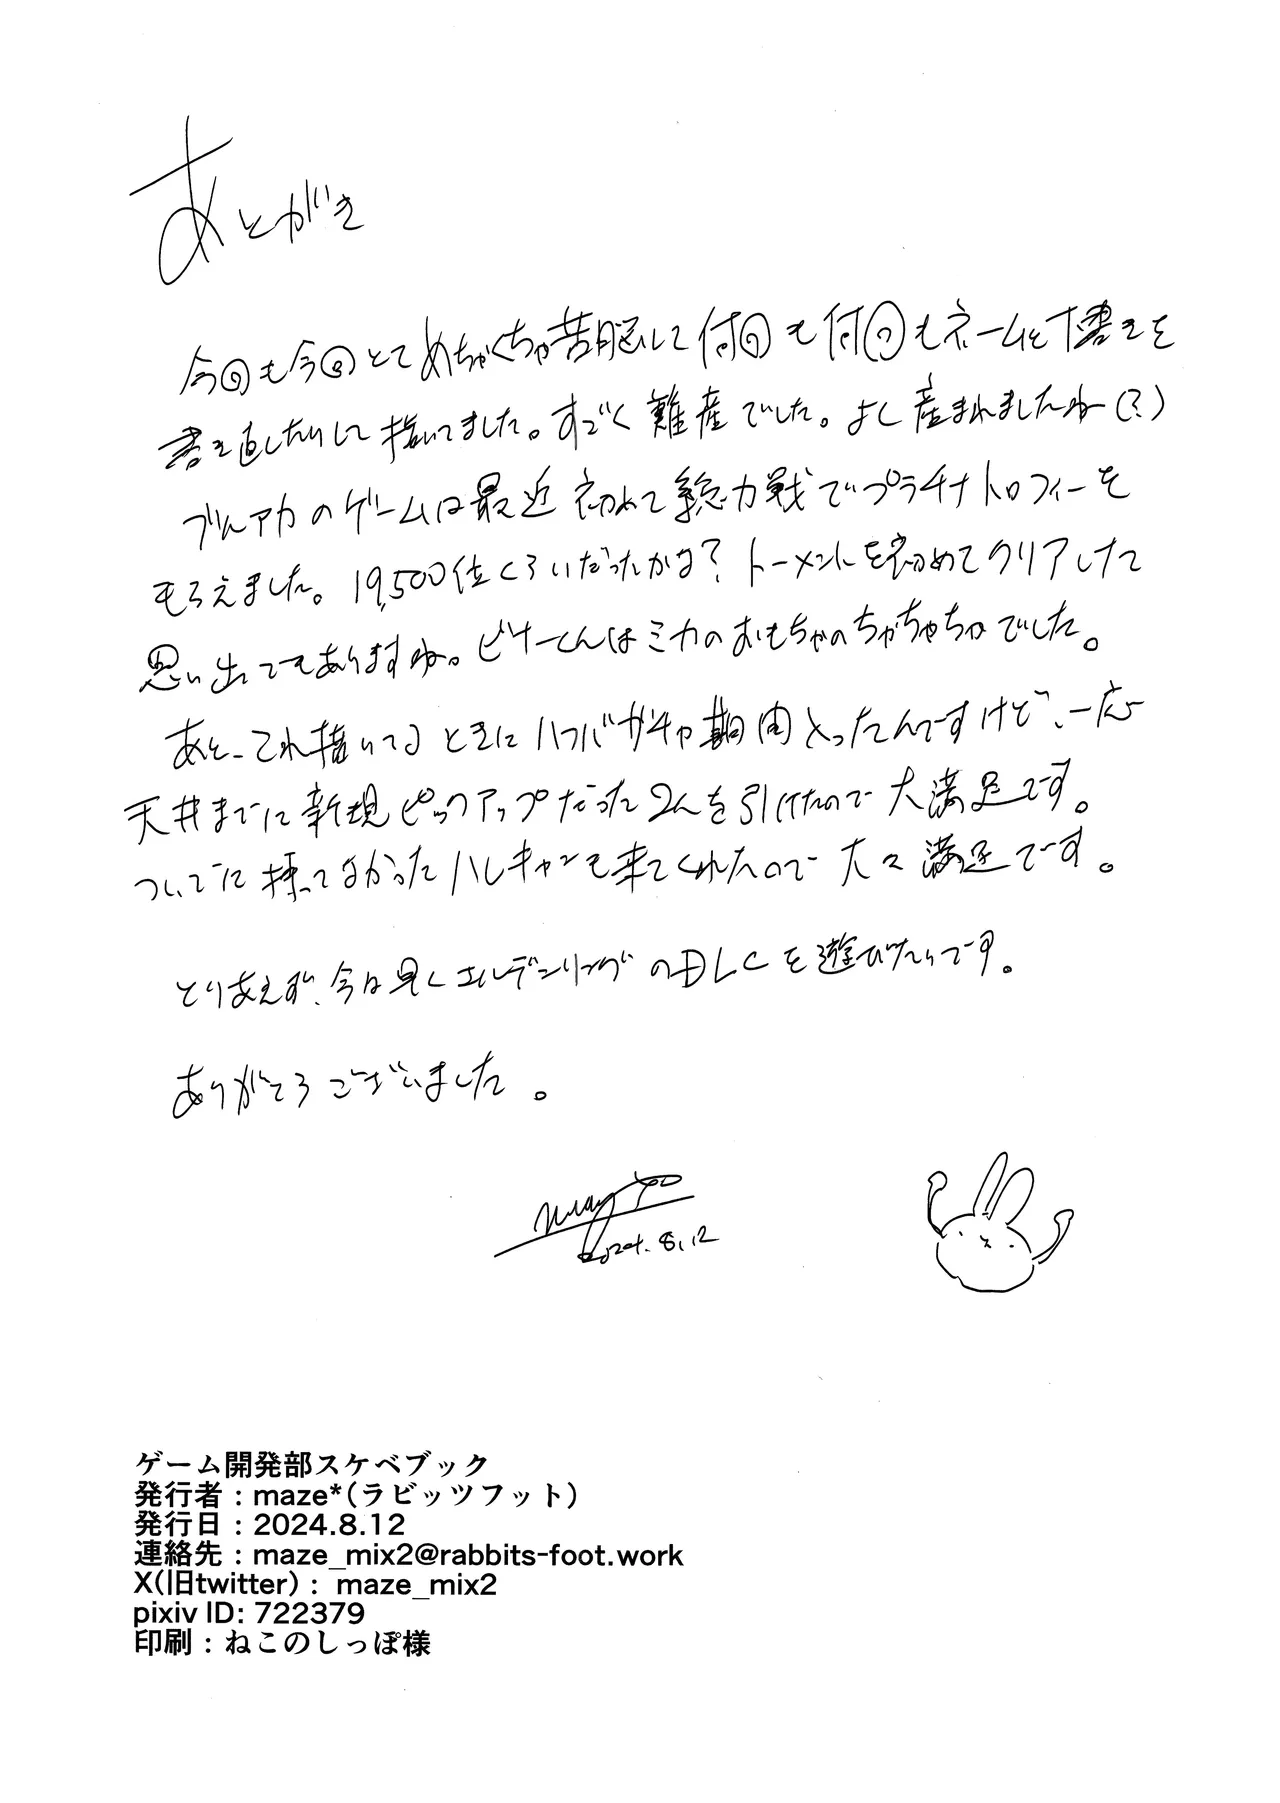 あとがき
今回も今回とてめちゃくちゃ苦悩して何回も何回もネームと下書きを
書き直したりして描いてました。すごく難産でした。よし産まれましたねー(?)
ブルアカのゲームは最近初めて総力戦でプラチナトロフィーを
もらえました。19,500位くらいだったかな?トーメントを初めてクリアしたて
思い出でもありますね。ビナーくんはミカのおもちゃのちゃちゃちゃでした。
あと、これ描いてるときにハフバガチャ期間とったんですけど、一応
天井までに新規ピックアップだった2人を引けたので大満足です。
ついでに持ってなかったハレキャンも来てくれたので大々満足です。
とりあえず、今は早くエルデンリングのDLCを遊びたいです。
ありがとうございました。
2024.8.12
ゲーム開発部スケベブック
発行者：maze*(ラビッツフット)
発行日：2024.8.12
連絡先：maze_mix2@rabbits-foot.work
X(旧twitter)： maze_mix2
pixiv ID: 722379
印刷：ねこのしっぽ様